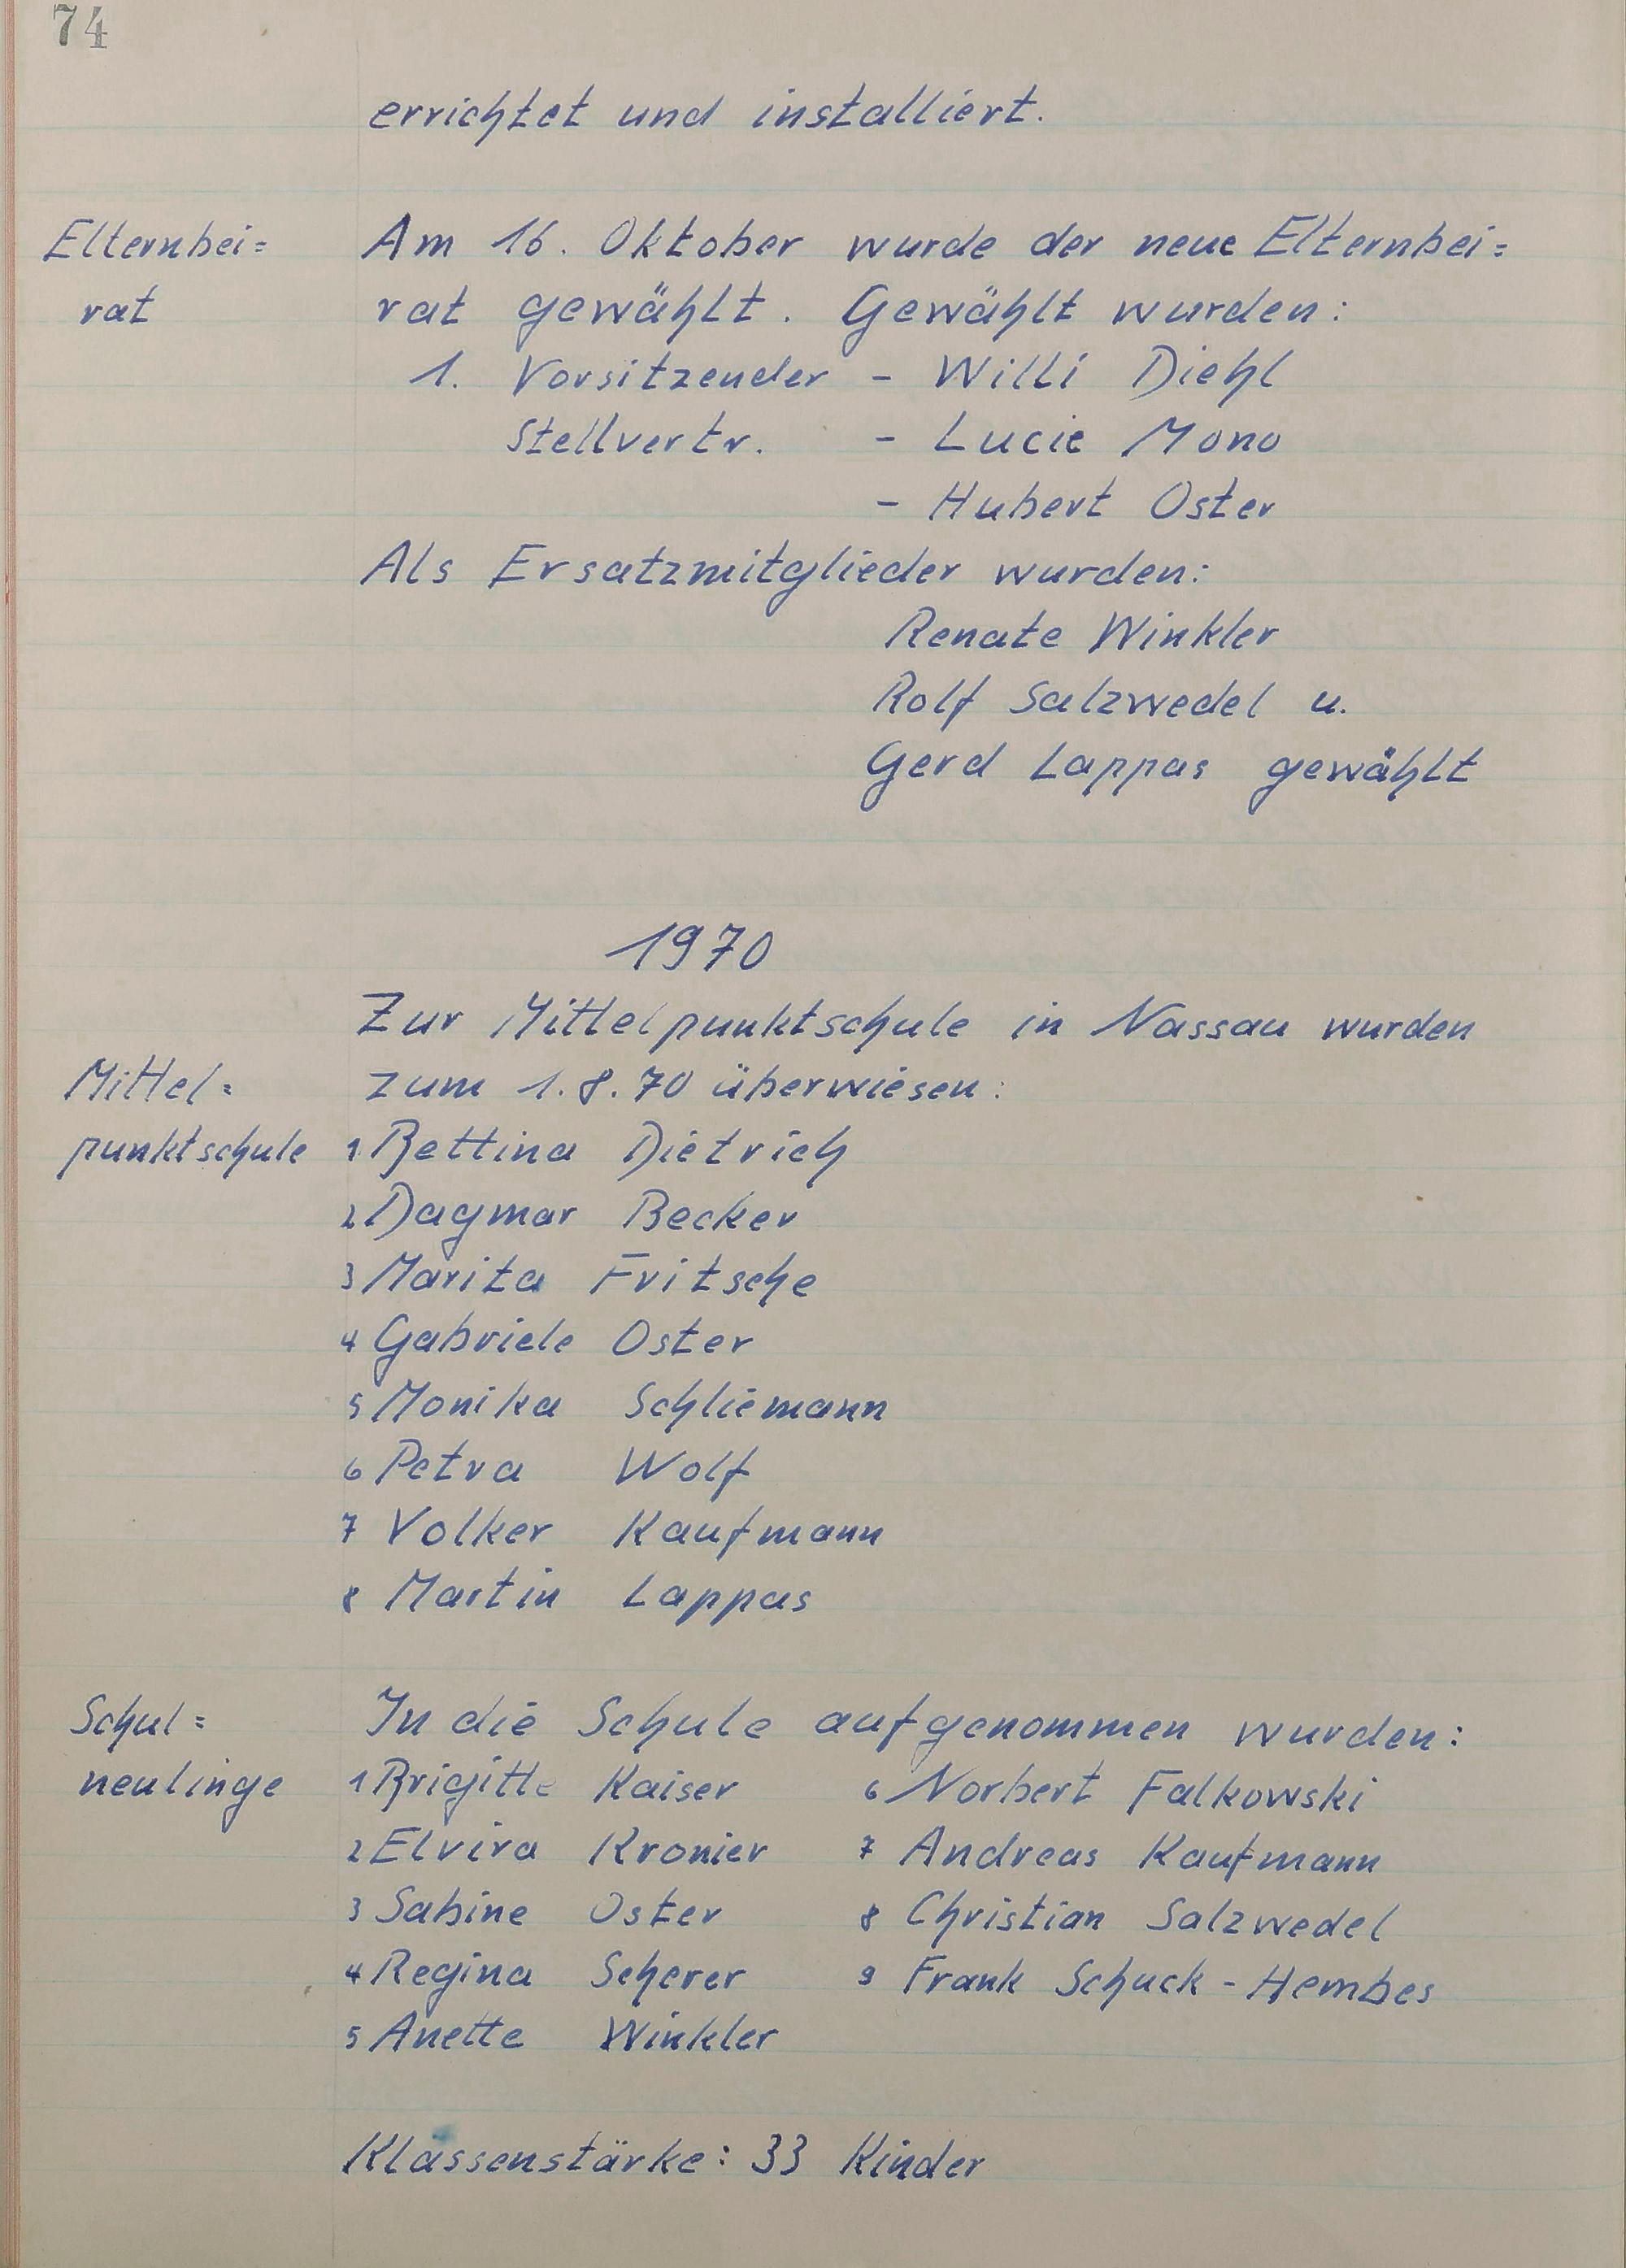 74
errichtet und installiert.
Elternbei= Am 16. Oktober wurde der neue Elternbei=
rat rat gewählt. Gewählt wurden:
1. Vorsitzender - Willi Diehl
Stellvertr. - Lucie Mono
- Hubert Oster
Als Ersatzmitglieder wurden:
Renate Winkler
Rolf Salzwedel u.
Gerd Lappas gewählt
1970
Zur Mittelpunktschule in Nassau wurden
Mittel= zum 1.8.70 überwiesen:
punktschule 1. Bettina Dietrich
2 Dagmar Becker
3 Marita Fritsche
4 Gabriele Oster
5 Monika Schliemann
6 Petra Wolf
7 Volker Kaufmann
8 Martin Lappas
Schul= In die Schule aufgenommen wurden:
neulinge 1 Brigitte Kaiser 6 Norbert Falkowski
2 Elvira Kronier 7 Andreas Kaufmann
3 Sabine Oster 8 Christian Salzwedel
4 Regina Scherer 9 Frank Schuck-Hembes
5 Anette Winkler
Klassenstärke: 33 Kinder